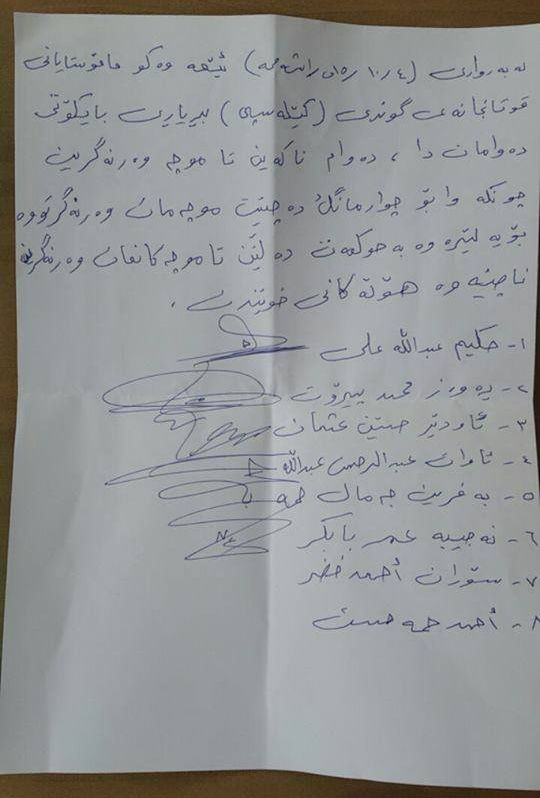 لە بەرواری (٤/١٠/٢٠١٥) ئێمە وەکو مامۆستایانی
قوتابخانەی گوندی (کێلە سپی) بڕیاری بایکۆتی
دەوامان دا ، دەوام ناکەین تا موچە وەرنەگرین
چونکە وا بۆ چوار مانگ دەچێت موچەمان وەرنەگرتووە
بۆیە لێرەوە بە حوکمەت دەڵێن تا موچەکانمان وەرنەگرین
ناچینەوە هۆڵەکانی خوێندن .
١- حکیم عبداللە علی
٢- پەروەز محمد پیرۆت
٣- ئاودێر حسێن عثمان
٤- ئاوات عبدالرحمن عبداللە
٥- بەفرین جەمال حمە
٦- نەجیبە عمر بابکر
٧- ستوران أحمد خضر
٨- أحمد حمە حسن